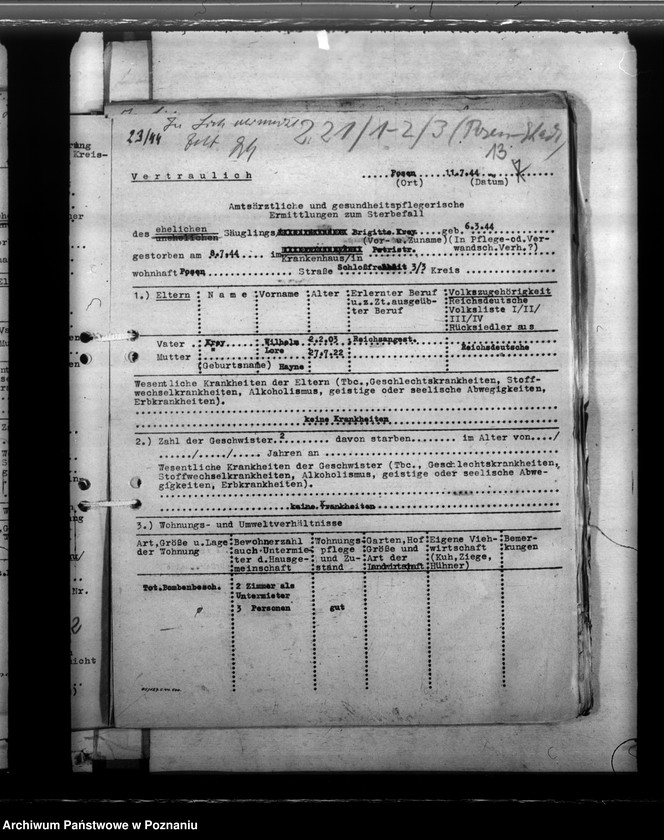 23/44
221/1-2/3 (Posen-Stadt)
13
Posen 11.7.44
Vertraulich (Ort) (Datum)
Amtsärztliche und gesundheitspflegerische
Ermittlungen zum Sterbefall
des ehelichen Säuglings Brigitte Krey geb. 6.3.44
unehelichen (Vor- u. Zuname) (In Pflege-od.Ver-
wandsch.Verh.?)
gestorben am 8.7.44 im Petristr.
Krankenhaus/in
wohnhaft Posen Straße Schloßfreiheit 3/3 Kreis
1.) Eltern Name Vorname Alter Erlernter Beruf Volkszugehörigkeit
u.z.Zt.ausgeüb- Reichsdeutsche
ter Beruf Volksliste I/II/
III/IV
Rücksiedler aus
Vater Krey Wilhelm 2.2.03 Reichsangest.
Mutter " Lore 27.7.22 Reichsdeutsche
(Geburtsname) Hayne
Wesentliche Krankheiten der Eltern (Tbc.,Geschlechtskrankheiten, Stoff-
wechselkrankheiten, Alkoholismus, geistige oder seelische Abwegigkeiten,
Erbkrankheiten).
keine Krankheiten
2.) Zahl der Geschwister 2 davon starben im Alter von /
/ / Jahren an
Wesentliche Krankheiten der Geschwister (Tbc., Geschlechtskrankheiten,
Stoffwechselkrankheiten, Alkoholismus, geistige oder seelische Abwe-
gigkeiten, Erbkrankheiten).
keine Krankheiten
3.) Wohnungs- und Umweltverhältnisse
Art,Größe u.Lage Bewohnerzahl Wohnungs- Garten,Hof Eigene Vieh- Bemer-
der Wohnung auch Untermie- pflege Größe und wirtschaft kungen
ter d.Hausge- und Zu- Art der (Kuh,Ziege,
meinschaft stand Landwirtschaft Hühner)
Tot.Bombenbesch. 2 Zimmer als
Untermieter
3 Personen gut
Archiwum Państwowe w Poznaniu